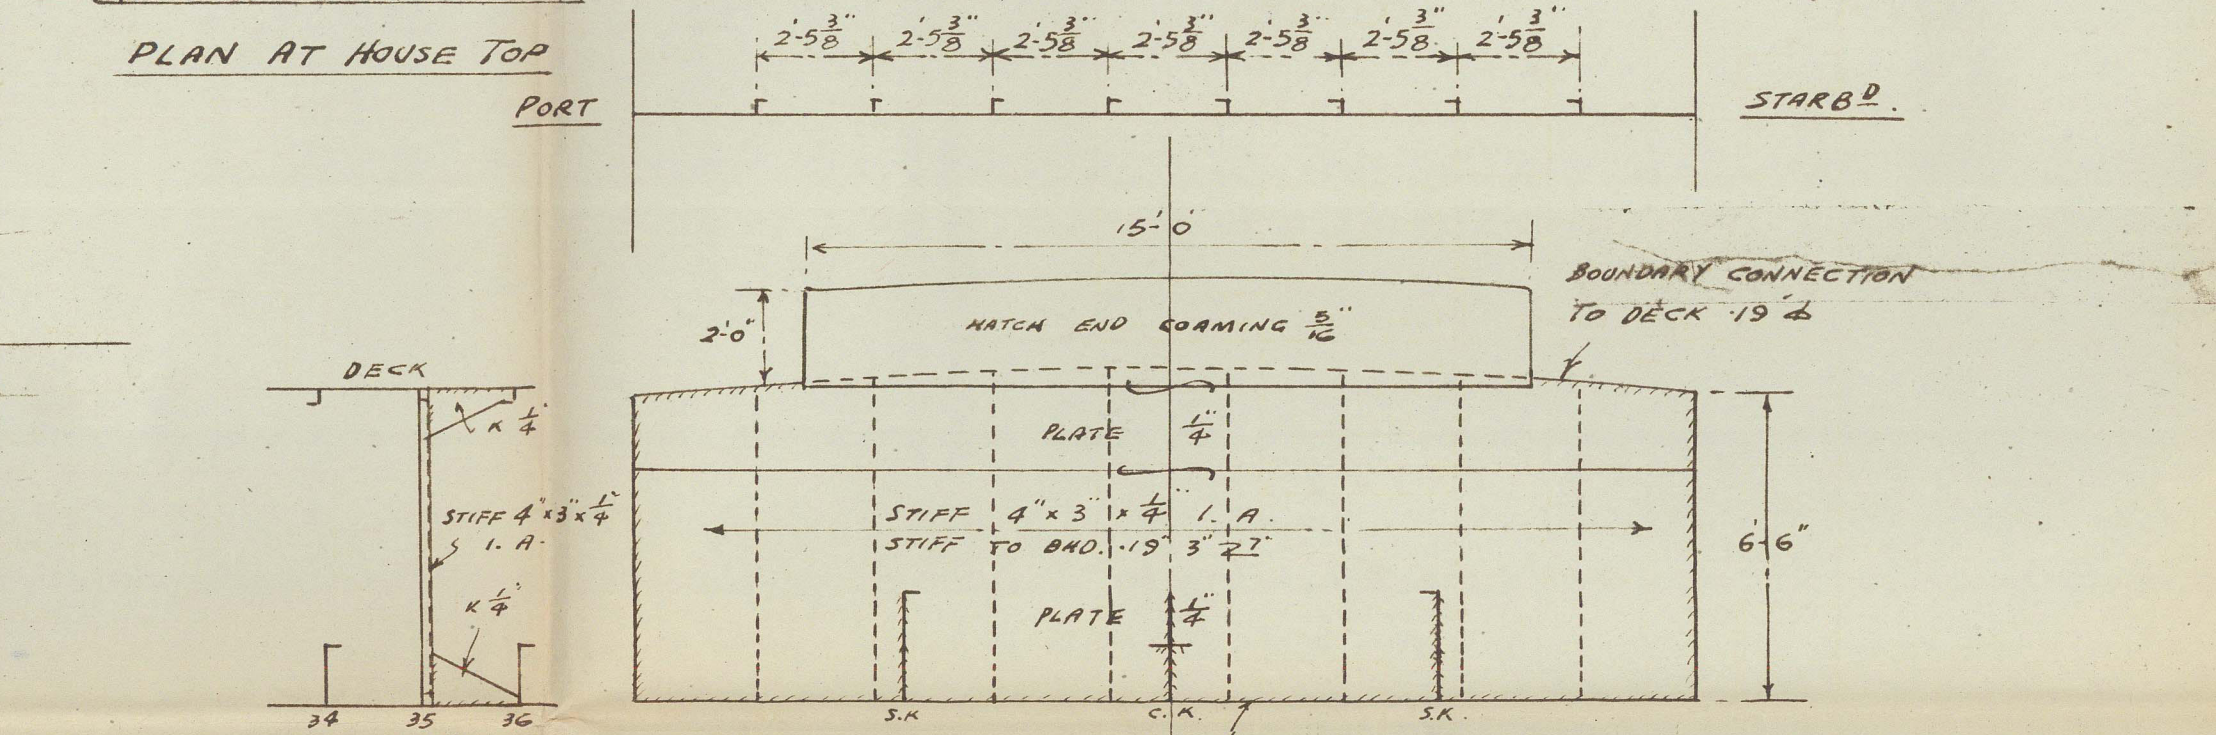 PLAN AT HOUSE TOP
2'-5 3/8" 2'-5 3/8" 2'-5 3/8" 2'-5 3/8" 2'-5 3/8" 2'-5 3/8" 2'-5 3/8"
PORT
STARBD.
15'-0"
BOUNDARY CONNECTION
TO DECK .19"
2'-0"
HATCH END COAMING 5/16"
DECK
K 1/4"
PLATE 1/4"
STIFF 4"x3"x1/4"
I.A.
STIFF 4"x3"x1/4" I.A.
STIFF TO BHD. .19" 3"
6'-6"
K 1/4"
PLATE 1/4"
34 35 36
S.K C.K. S.K.